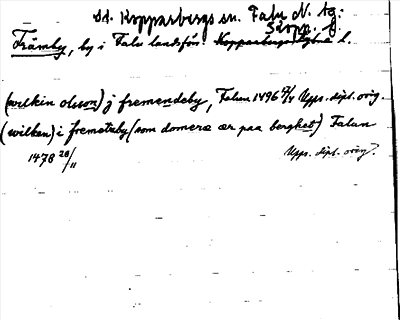 St. Kopparbergs sn. Falu N. tg:
Främby, by i Falu landsförs. l.
(wilkin olsson) j fremendeby, Falun 1496 Upps. dipl. orig.
(wilken) i fremetzby (som domere ær paa berghet) Falan
1478 28/11 Upps. dipl. orig.